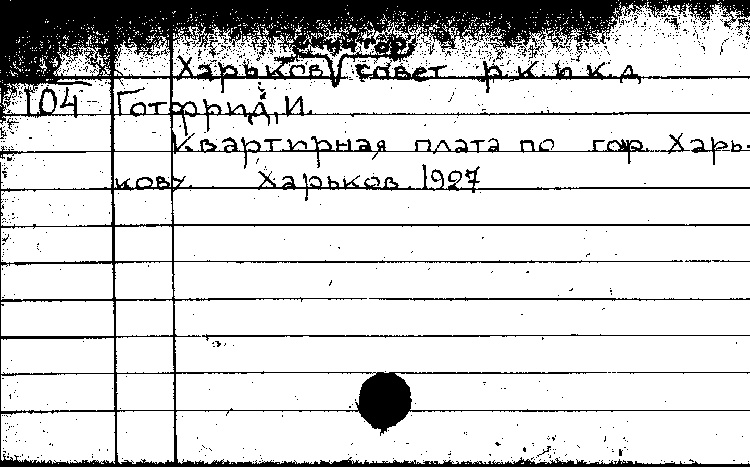 Харьков совет р. к. и к. д
104 Готфрид, И.
Квартирная плата по гор. Харь-
кову. Харьков. 1927